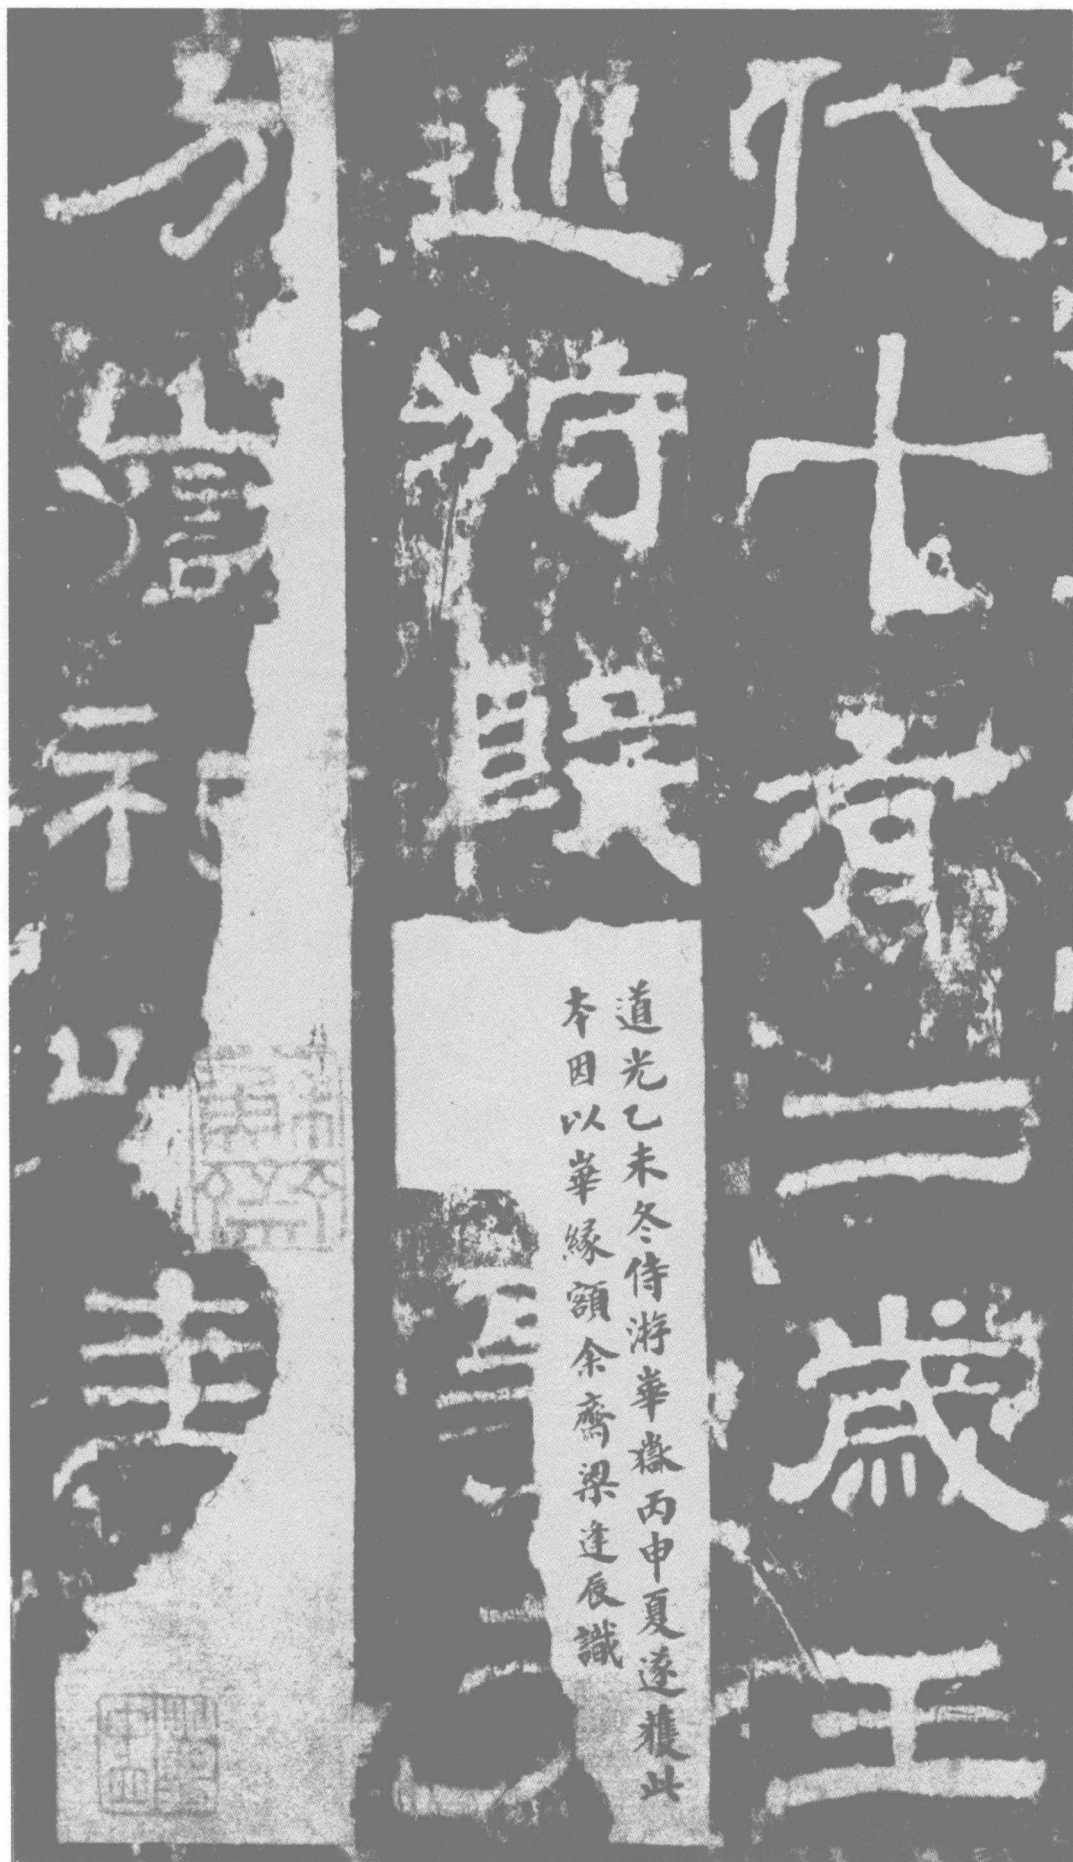 代十有二歲王
巡狩殷
道光乙未冬侍游崋嶽丙申夏遂獲此
本因以崋緣額余齋梁逢辰識
方嶽祀以圭